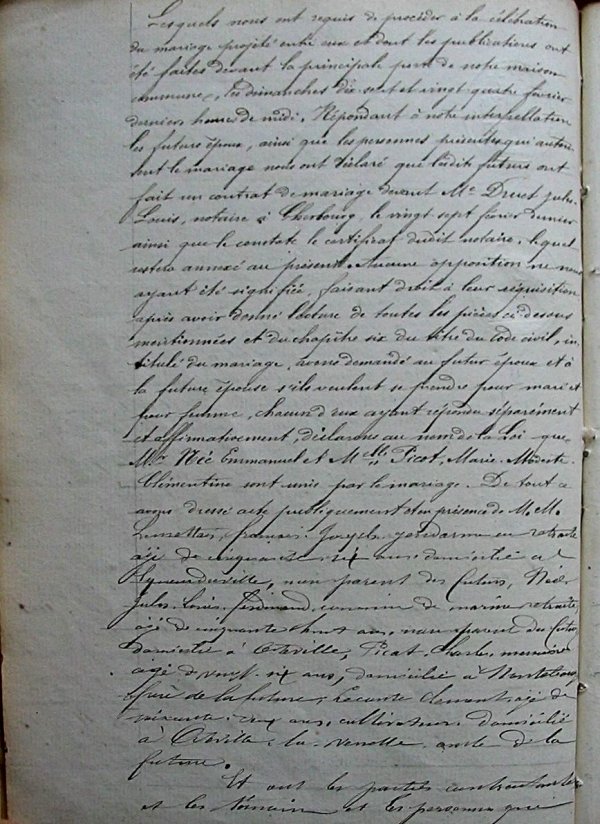 Lesquels nous ont requis de procéder à la célébration
du mariage projeté entre eux et dont les publications ont
été faites devant la principale porte de notre maison
commune, les dimanches dix-sept et vingt quatre février
dernier, heure de midi. Répondant à notre interpellation
les futurs époux, ainsi que les personnes présentes qui autori
sent le mariage nous ont déclaré que lesdits futurs ont
fait un contrat de mariage devant Me Druet Jules
Louis, notaire à Cherbourg, le vingt sept février dernier
ainsi que le constate le certificat dudit notaire, lequel
restera annexé au présent. Aucune opposition ne nous
ayant été signifiée, faisant droit à leur réquisition
après avoir donné lecture de toutes les pièces ci-dessus
mentionnées et du chapître six du titre du Code civil, in
titulé du mariage, avons demandé au futur époux et à
la future épouse s'ils veulent se prendre pour mari et
pour femme, chacun d'eux ayant répondu séparément
et affirmativement, déclarons au nom de la Loi que
Mr Née Emmanuel et Melle Picot, Marie Modeste
Clémentine sont unis par le mariage. De tout ce
avons dressé acte publiquement et en présence de M.M.
François Joseph, gendarme en retraite
âgé de cinquante six ans domicilié à
non parent des futurs,
Jules Louis Ferdinand, de marine retraité,
âgé de cinquante huit ans, non parent des futurs
domicilié à Octeville, Picot Charles,
âgé de vingt six ans, domicilié à
frère de la future, Lecante Clément âgé de
ans, cultivateur domicilié
à Octeville la Venelle oncle de la
future.
Et ont les parties contractantes
et les témoins et les personnes qui